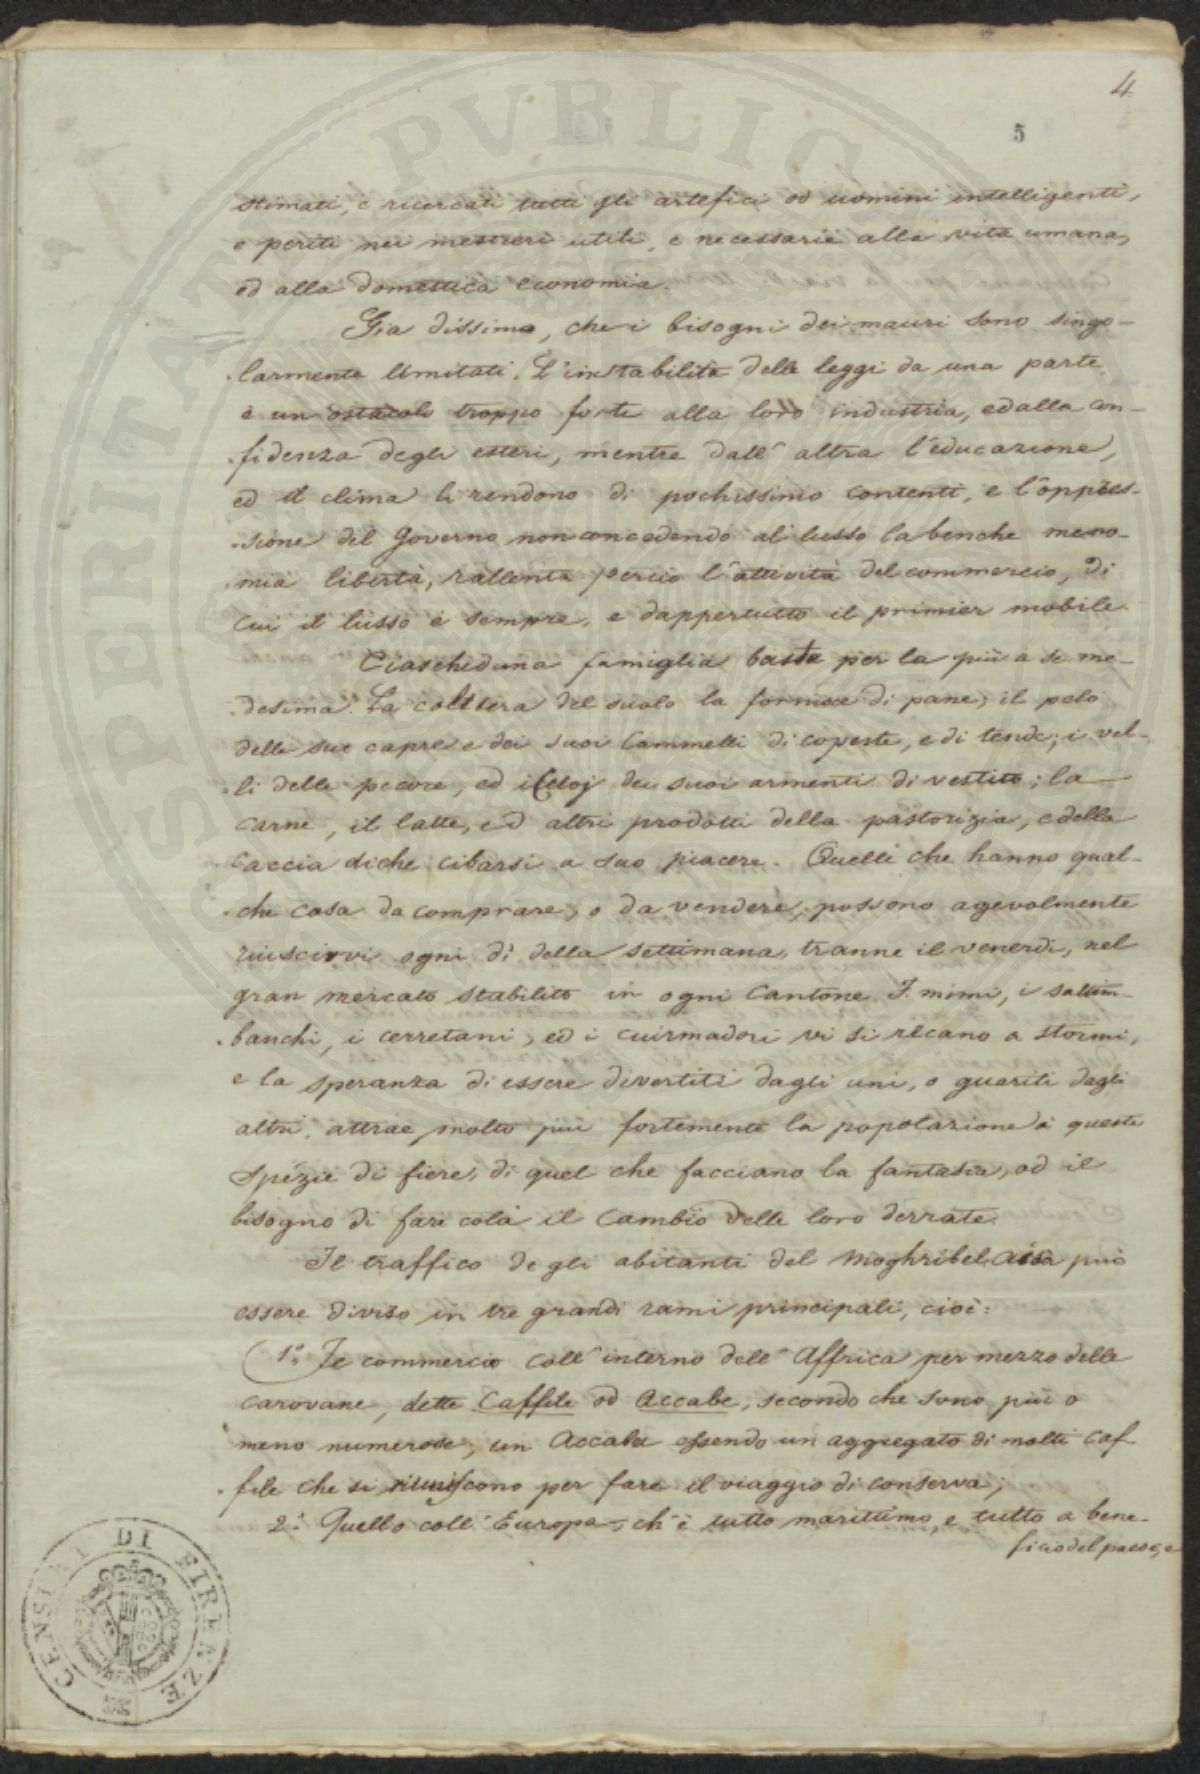 4
5
stimati, e ricercati tutti gli artefici od uomini intelligenti,
e periti nei mestieri utili, e necessarii alla vita umana,
ed alla domestica economia.
Gia dissimo, che i bisogni dei mauri sono singo-
larmente limitati. L'instabilità delle leggi da una parte
è un ostacolo troppo forte alla loro industria, ed alla con-
fidenza degli esteri, mentre dall'altra l'educazione,
ed il clima li rendono di pochissimo contenti, e l'oppres-
sione del Governo non concedendo al lusso la benche meno-
mia libertà, rallenta perciò l'attività del commercio, di
cui il lusso è sempre, e dappertutto il primier mobile.
Ciascheduna famiglia basta per la più a se me-
desima. La coltura del suolo la fornisce di pane; il pelo
delle sue capre e dei suoi Cammelli di coperte, e di tende; i vel-
li delle pecore, ed i cuoj dei suoi armenti di vestito; la
carne, il latte, ed altri prodotti della pastorizia, e della
caccia di che cibarsi a suo piacere. Quelli che hanno qual-
che cosa da comprare, o da vendere, possono agevolmente
riuscirvi ogni dì della settimana, tranne il venerdì, nel
gran mercato stabilito in ogni Cantone. I mimi, i saltim-
banchi, i cerretani, ed i ciurmadori vi si recano a stormi,
e la speranza di essere divertiti dagli uni, o guariti dagli
altri, attrae molto più fortemente la popolazione a queste
spezie di fiere, di quel che facciano la fantasia, od il
bisogno di fare colà il Cambio delle loro derrate.
Il traffico degli abitanti del Moghribel può
essere diviso in tre grandi rami principali, cioè:
1.° Il commercio coll'interno dell'Affrica per mezzo delle
carovane, dette Caffile od Accabe, secondo che sono più o
meno numerose, un Accaba essendo un aggregato di molti Caf-
file che si riuniscono per fare il viaggio di conserva;
2.° Quello coll'Europa, ch'è tutto marittimo, e tutto a bene-
ficio del paese, e
CENSITAI DI FIRENZE
PROSPERITATI PVBLICAE